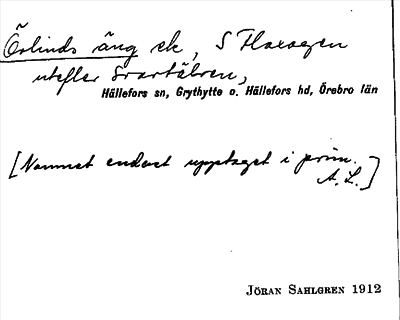 Örlinds äng ek, S Floxogen
utefter Svartälven,
Hällefors sn, Grythytte o. Hällefors hd, Örebro län
[Namnet endast upptaget i prim.
A. L.]
JÖRAN SAHLGREN 1912